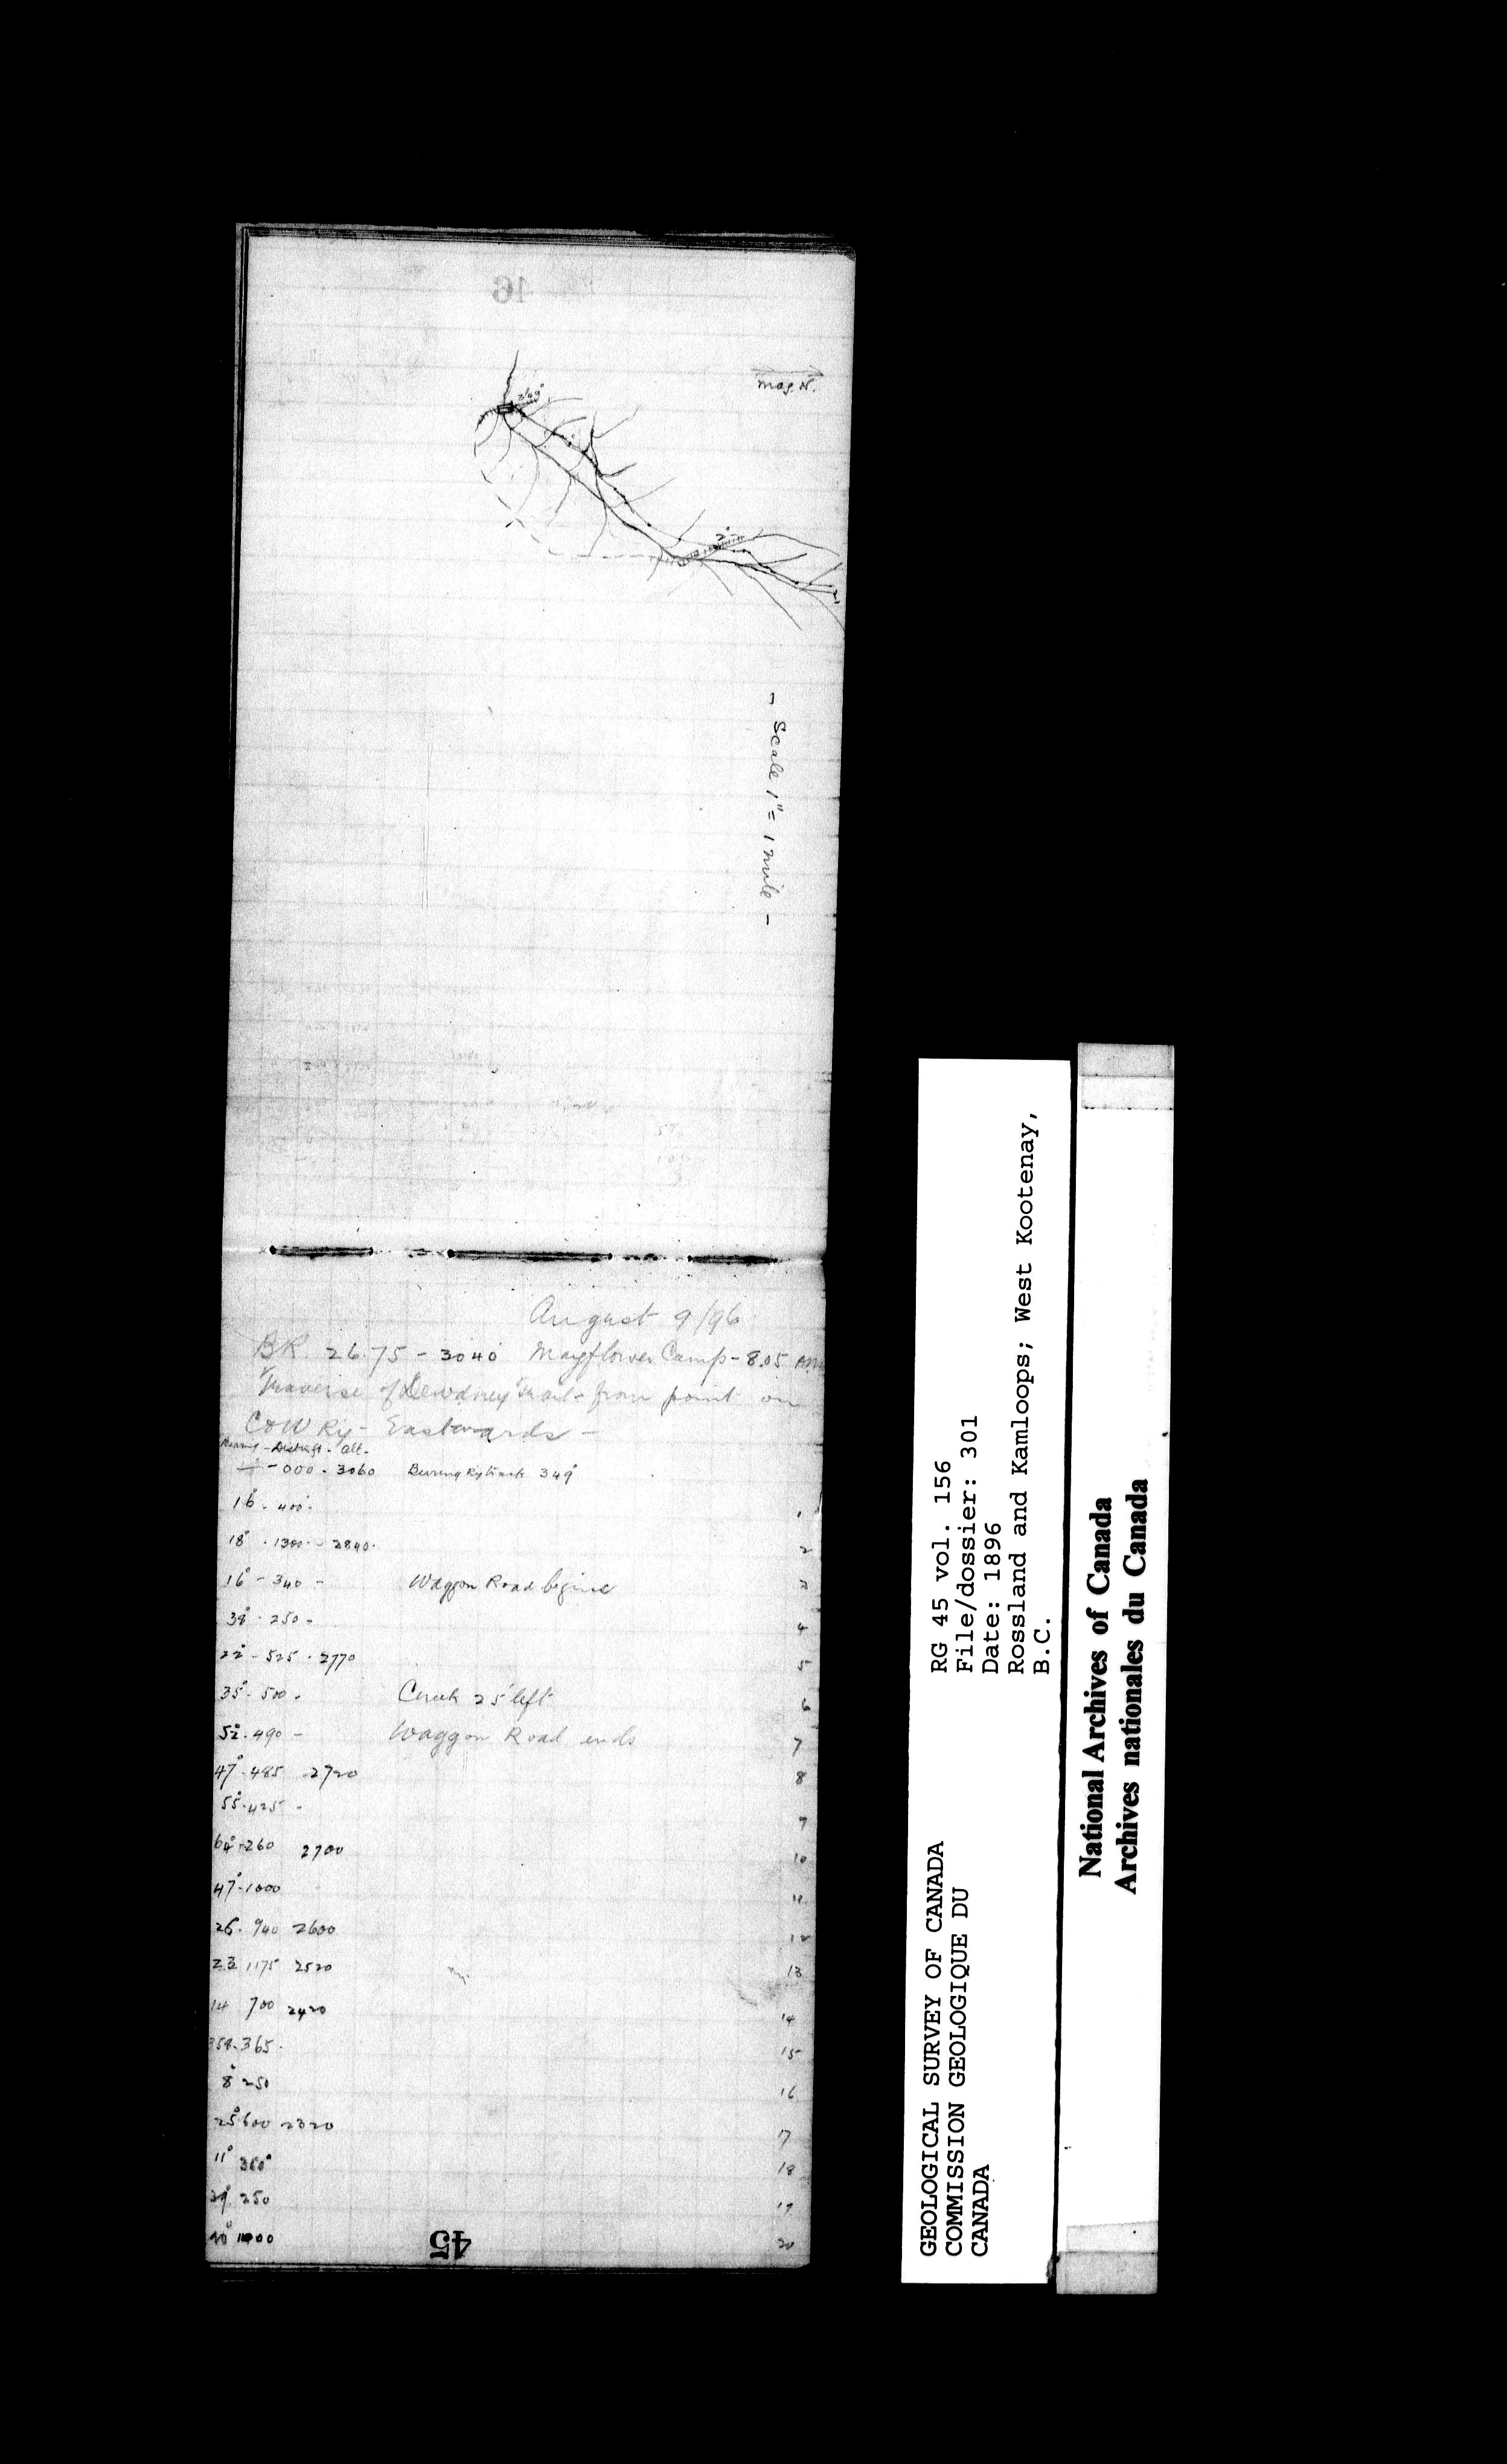 16
349°
mag. N.
2°
- Scale 1" = 1 mile -
August 9/96
BR. 26.75 - 3040 Mayflower Camp - 8.05 AM
Traverse of Dewdney Trail - from point on
C & W Ry - Eastwards -
Bearing - Dist. in ft. - alt.
- 000 - 3060 Bearing Ry track 349°
16° - 400 - 1
18° - 1300 - 2840 - 2
16° - 340 - Waggon Road begins 3
38° - 250 - 4
22° - 525 - 2770 5
35° - 500 - Creek 25' left 6
52° - 490 - Waggon Road ends 7
47° - 485 2720 8
55° - 425 - 9
64° - 260 2700 10
47° - 1000 11
26 - 940 2600 12
23 1175 2520 13
14 700 2420 14
358 - 365 - 15
8° 250 16
25° 600 2320 17
11° 350 18
250 19
1000 20
45
RG 45 vol. 156
File/dossier: 301
Date: 1896
Rossland and Kamloops; West Kootenay,
B.C.
GEOLOGICAL SURVEY OF CANADA
COMMISSION GEOLOGIQUE DU
CANADA
National Archives of Canada
Archives nationales du Canada